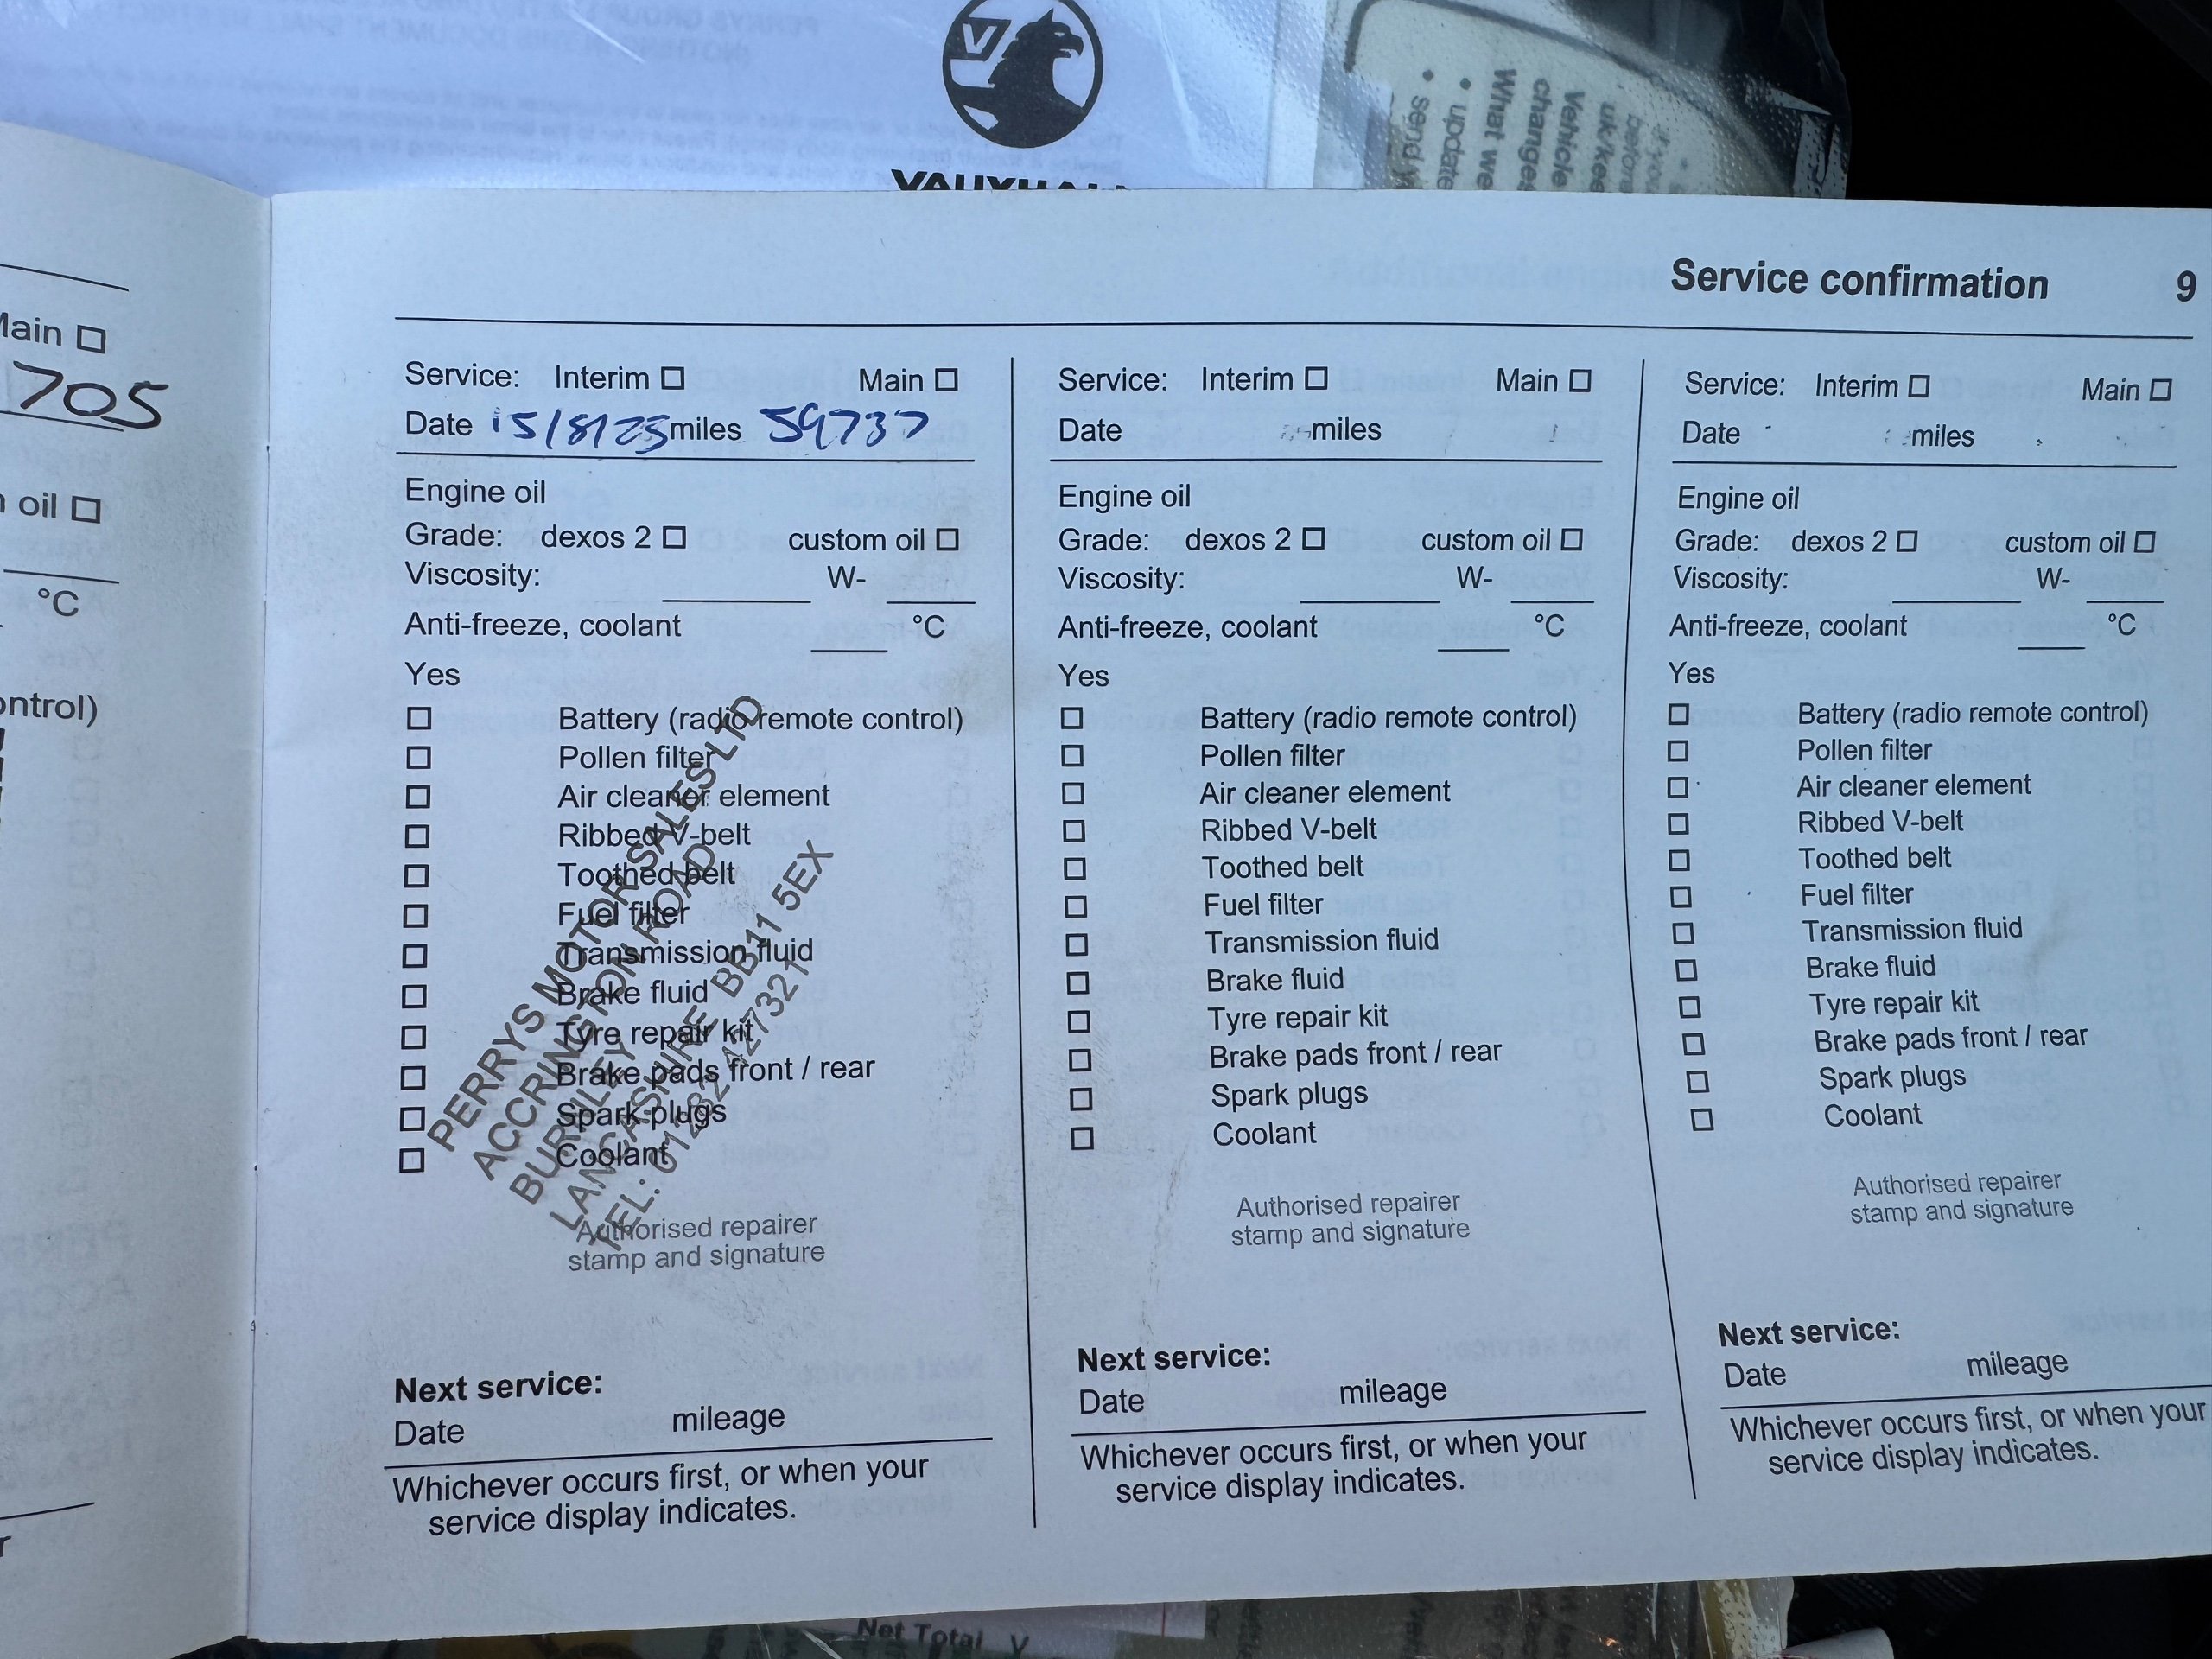 VAUXHALL
• send y
• update
What we
changes
Vehicle
uk/kee
before
if you
lain ☐
705
oil ☐
°C
ontrol)
Service confirmation 9
Service: Interim ☐ Main ☐
Date 15/8/25 miles 59737
Engine oil
Grade: dexos 2 ☐ custom oil ☐
Viscosity: ____ W- ____
Anti-freeze, coolant ____ °C
Yes
☐ Battery (radio remote control)
☐ Pollen filter
☐ Air cleaner element
☐ Ribbed V-belt
☐ Toothed belt
☐ Fuel filter
☐ Transmission fluid
☐ Brake fluid
☐ Tyre repair kit
☐ Brake pads front / rear
☐ Spark plugs
☐ Coolant
PERRYS MOTOR SALES LTD
ACCRINGTON ROAD
BURNLEY
LANCASHIRE BB11 5EX
TEL: 01282 427321
Authorised repairer
stamp and signature
Next service:
Date mileage
Whichever occurs first, or when your
service display indicates.
Service: Interim ☐ Main ☐
Date miles
Engine oil
Grade: dexos 2 ☐ custom oil ☐
Viscosity: ____ W- ____
Anti-freeze, coolant ____ °C
Yes
☐ Battery (radio remote control)
☐ Pollen filter
☐ Air cleaner element
☐ Ribbed V-belt
☐ Toothed belt
☐ Fuel filter
☐ Transmission fluid
☐ Brake fluid
☐ Tyre repair kit
☐ Brake pads front / rear
☐ Spark plugs
☐ Coolant
Authorised repairer
stamp and signature
Next service:
Date mileage
Whichever occurs first, or when your
service display indicates.
Service: Interim ☐ Main ☐
Date miles
Engine oil
Grade: dexos 2 ☐ custom oil ☐
Viscosity: ____ W- ____
Anti-freeze, coolant ____ °C
Yes
☐ Battery (radio remote control)
☐ Pollen filter
☐ Air cleaner element
☐ Ribbed V-belt
☐ Toothed belt
☐ Fuel filter
☐ Transmission fluid
☐ Brake fluid
☐ Tyre repair kit
☐ Brake pads front / rear
☐ Spark plugs
☐ Coolant
Authorised repairer
stamp and signature
Next service:
Date mileage
Whichever occurs first, or when your
service display indicates.
Net Total